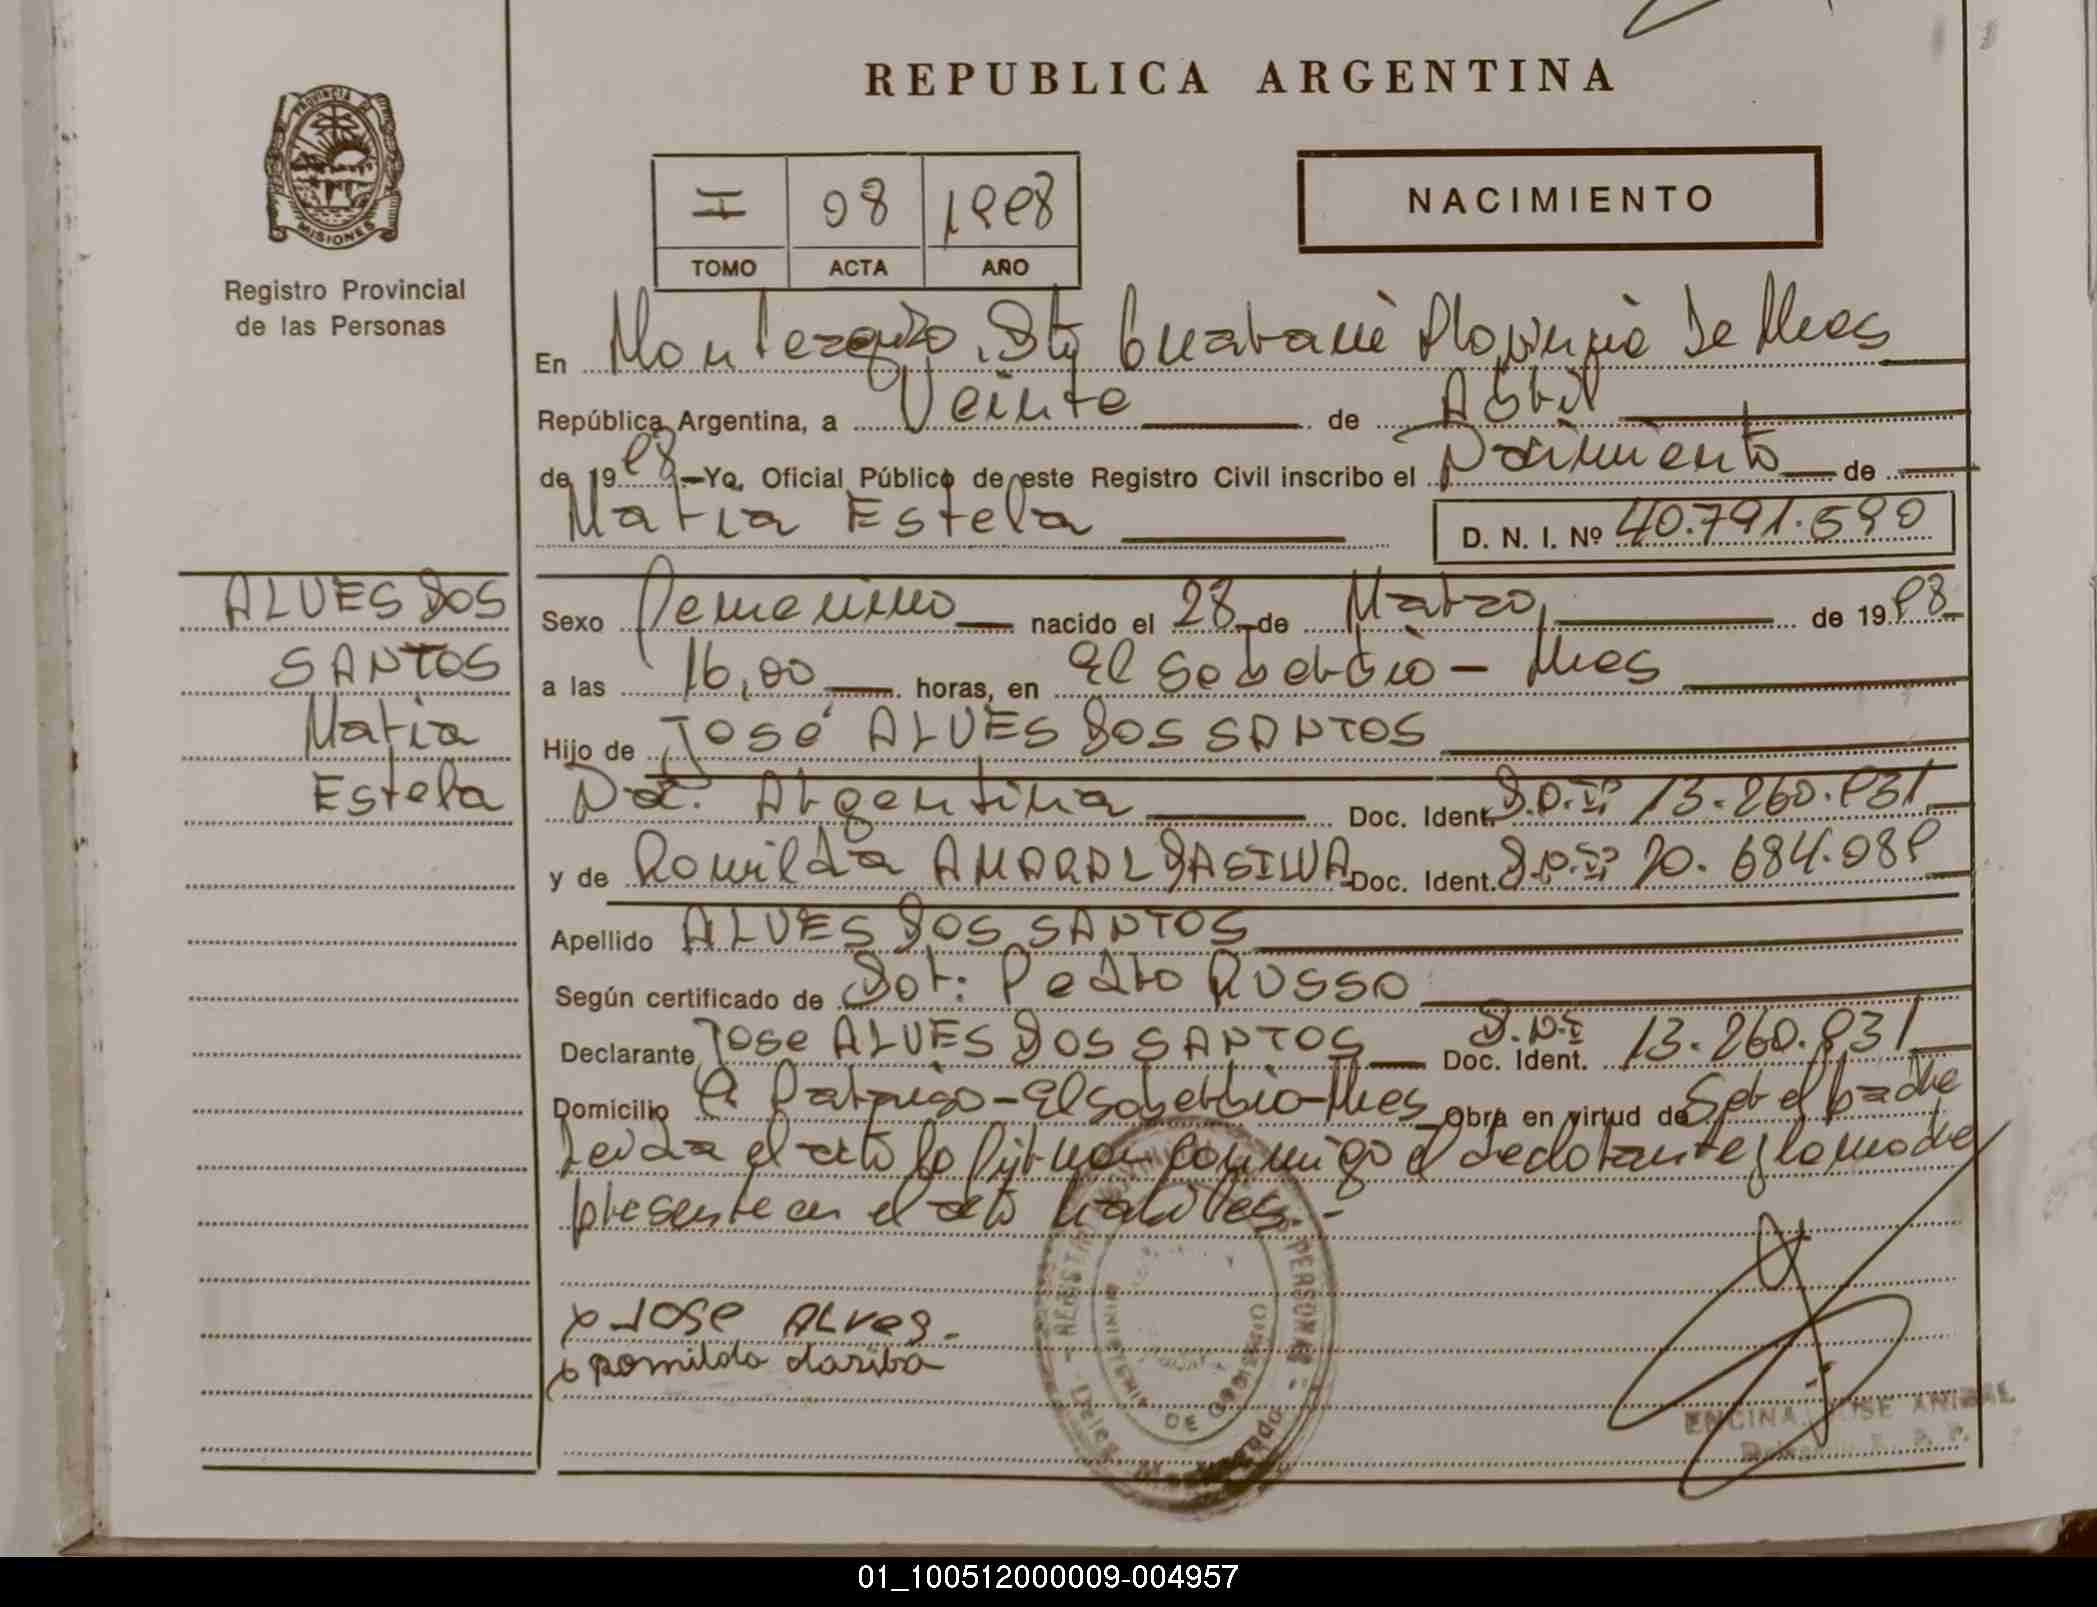 REPUBLICA ARGENTINA
PROVINCIA DE
MISIONES
Registro Provincial
de las Personas
I 08 1998
TOMO ACTA AÑO
NACIMIENTO
En Monteagudo, Guaraní Provincia de Mnes
República Argentina, a Veinte de Abril
de 1998 — Yo, Oficial Público de este Registro Civil inscribo el Nacimiento de
Maria Estela
D. N. I. Nº 40.791.590
ALVES DOS
SANTOS
Maria
Estela
Sexo Femenino nacido el 28 de Marzo, de 1998
a las 16,00 horas, en El Soberbio - Mnes
Hijo de José ALVES DOS SANTOS
Nac. Argentina Doc. Ident. D.N.I. 13.260.931
y de Romilda AMARAL DASILVA Doc. Ident. D.N.I. 20.684.089
Apellido ALVES DOS SANTOS
Según certificado de Dor: Pedro RUSSO
Declarante Jose ALVES DOS SANTOS Doc. Ident. D.N.I. 13.260.931
Domicilio El Soberbio - Mnes Obra en virtud de Ser el padre
Leida el acta la firman conmigo el declarante y la madre
presente en el acto
x JOSE ALVES.
x Romilda dasilva
MINISTERIO DE GOBIERNO
ENCINA, JOSE ANIBAL
01_100512000009-004957